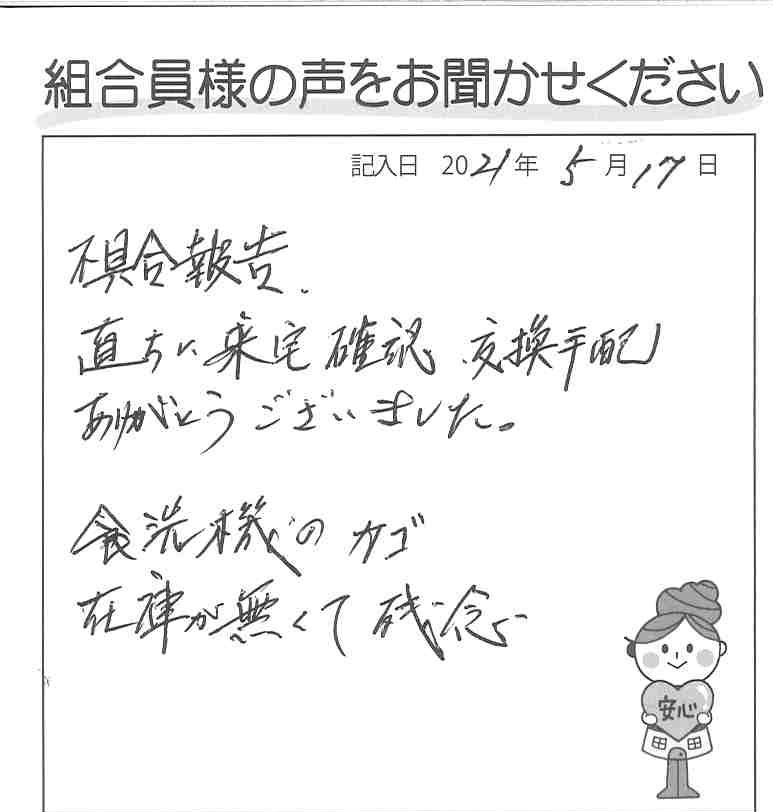 組合員様の声をお聞かせください
記入日 2021年 5月17日
不具合報告.
直ちに来宅確認、交換手配
ありがとうございました。
食洗機のカゴ
在庫が無くて残念
安心